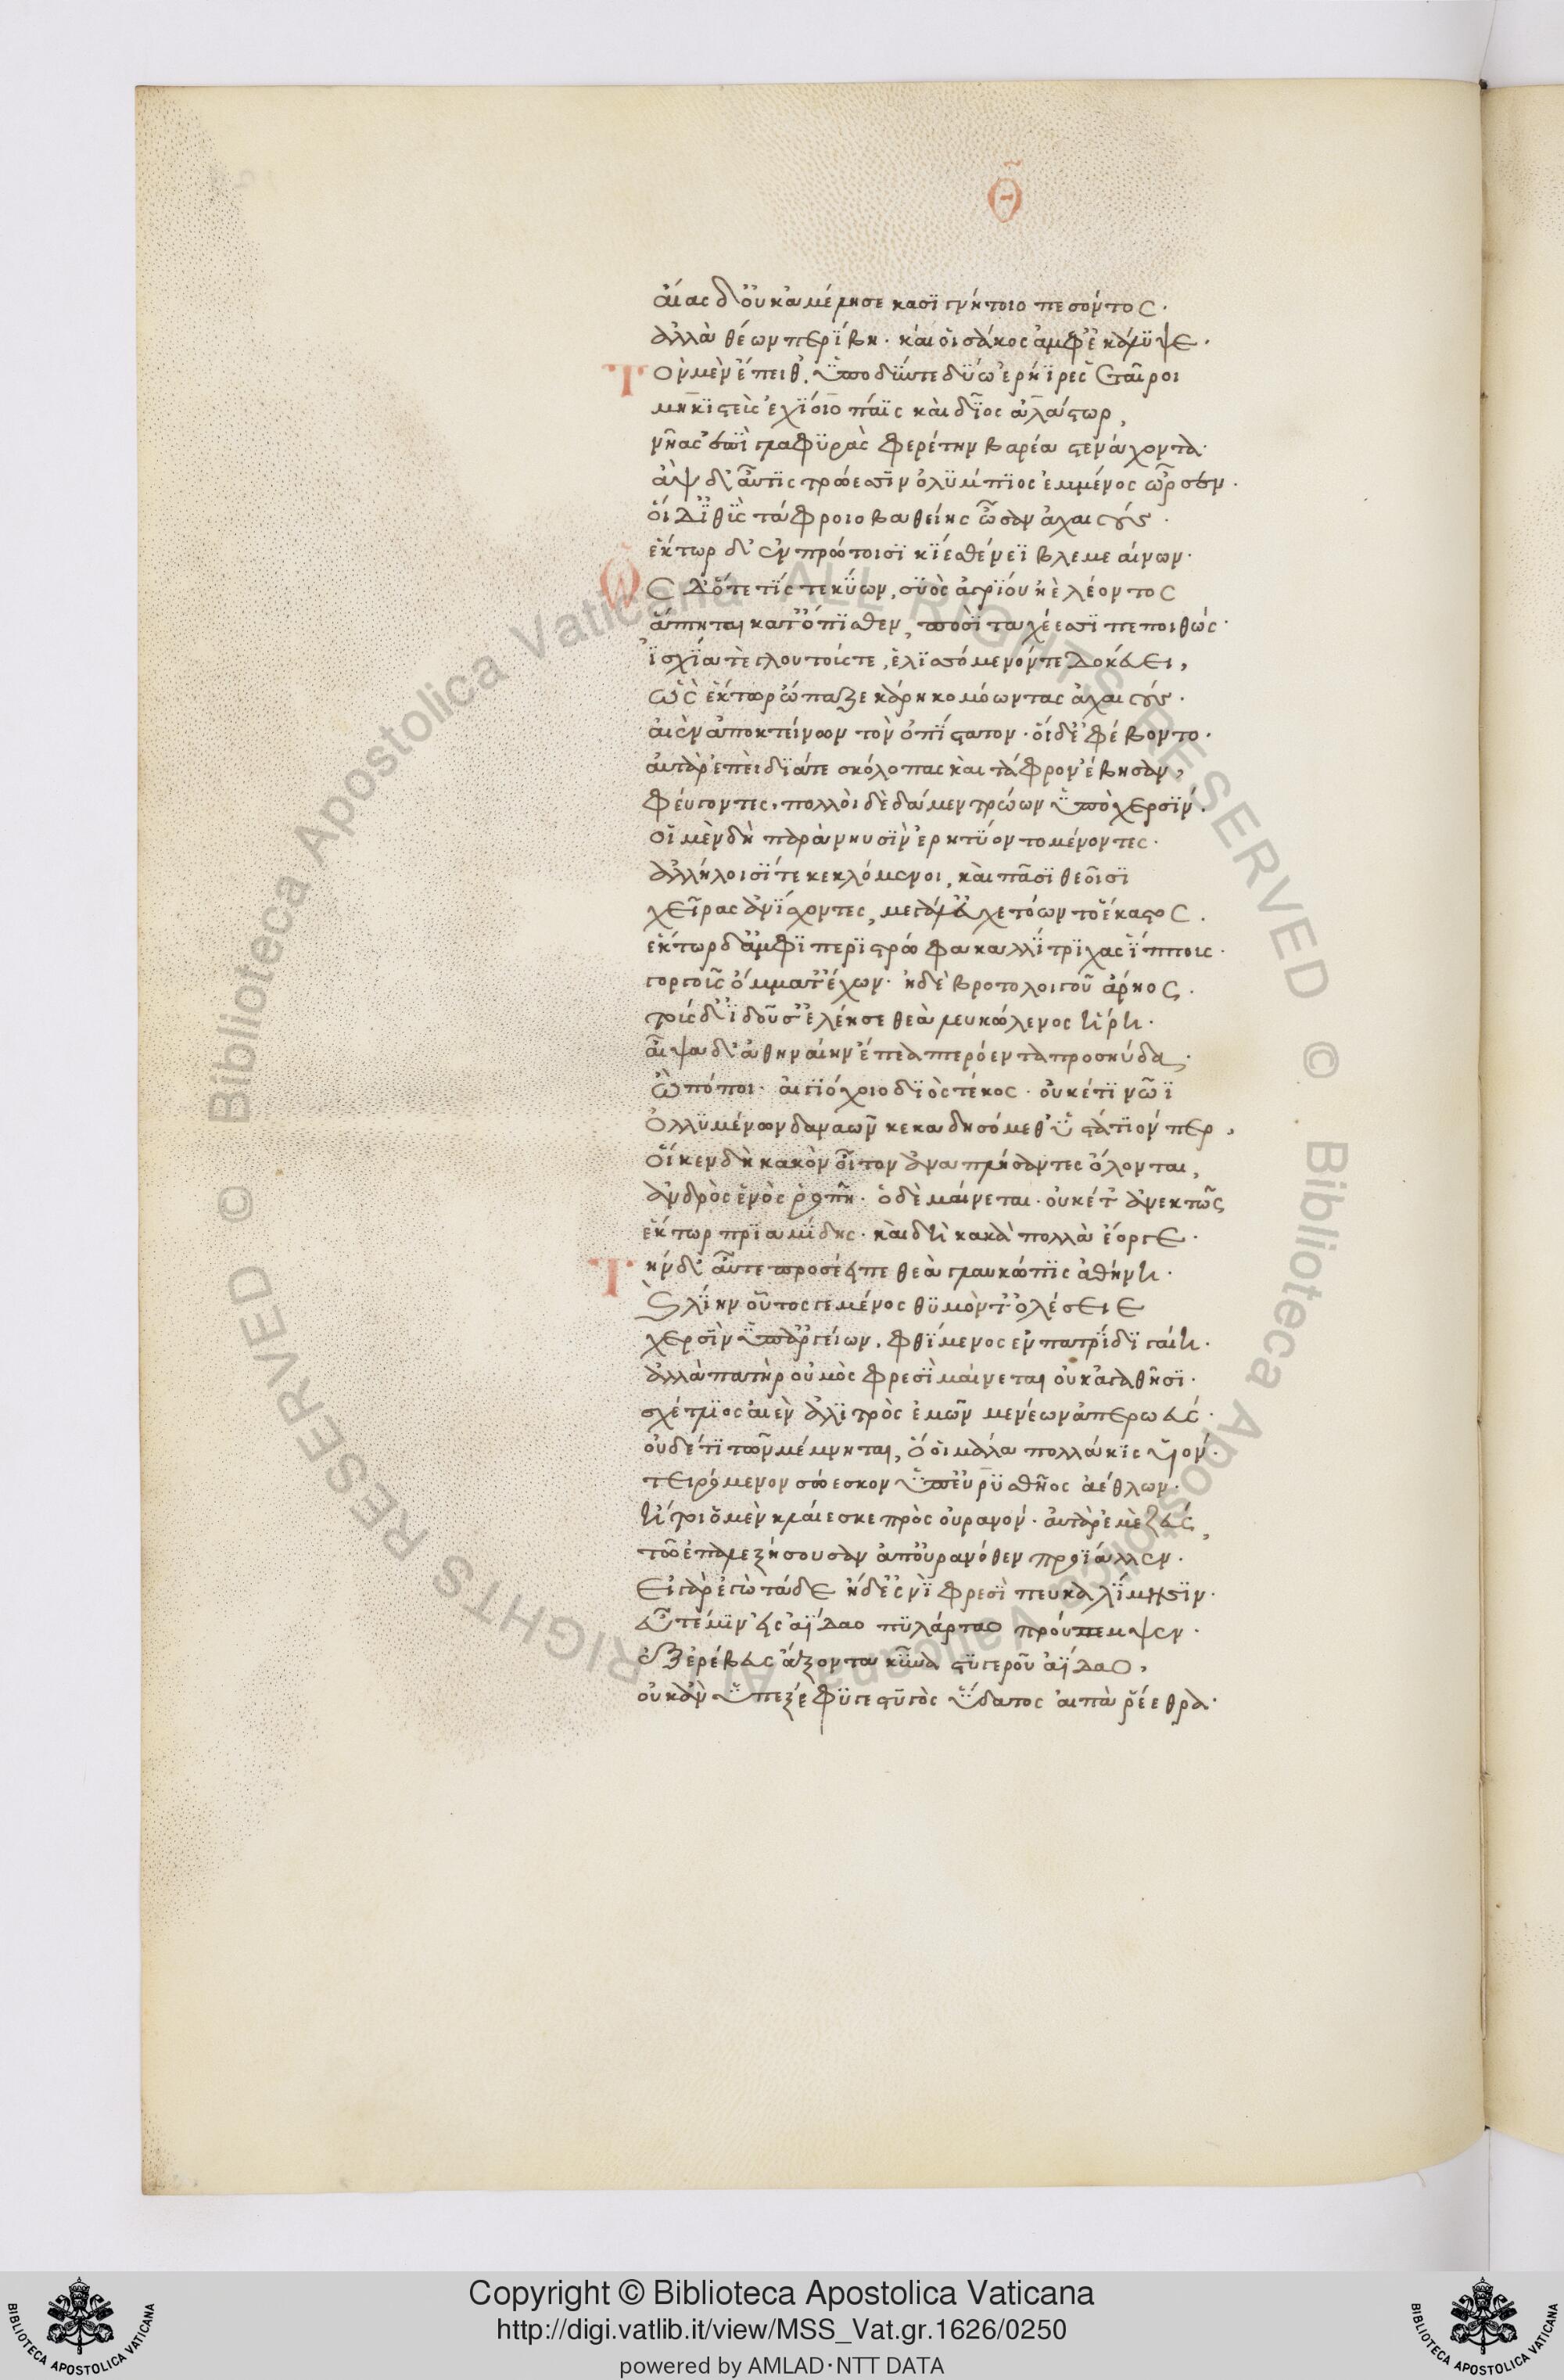 Θ
αἴας δ' οὐκ ἀμέλησε κασϊγνήτοιο πεσόντος·
ἀλλὰ θέων περίβη· καί οἱ σάκος ἀμφεκάλυψε·
Τὸν μὲν ἔπειθ' ὑποδύντε δύω ἐρίηρες ἑταῖροι
μηκιστεὺς ἐχίοιο πάϊς καὶ δῖος ἀλάστωρ,
νῆας ἐπὶ γλαφυρὰς φερέτην βαρέα στενάχοντα·
ἂψ δ' αὖτις τρώεσσιν ὀλύμπιος ἐμμένος ὦρσεν·
οἱ δ' ἰθὺς τάφροιο βαθείης ὦσαν ἀχαιούς·
ἕκτωρ δ' ἐν πρώτοισι κίε σθένεϊ βλεμεαίνων·
Ὡς δ' ὅτε τίς τε κύων, συὸς ἀγρίου ἠὲ λέοντος
ἅπτηται κατόπισθεν, ποσὶ ταχέεσσι πεποιθώς·
ἰσχία τὲ γλουτούς τε, ἑλισσόμενόν τε δοκεύει,
ὣς ἕκτωρ ὤπαζε κάρη κομόωντας ἀχαιούς·
αἰὲν ἀποκτείνων τὸν ὀπίστατον· οἱ δ' ἐφέβοντο·
αὐτὰρ ἐπεὶ διά τε σκόλοπας καὶ τάφρον ἔβησαν,
φεύγοντες, πολλοὶ δὲ δάμεν τρώων ὑπὸ χερσίν·
οἱ μὲν δὴ παρὰ νηυσὶν ἐρητύοντο μένοντες·
ἀλλήλοισί τε κεκλόμενοι, καὶ πᾶσι θεοῖσι
χεῖρας ἀνίσχοντες, μεγάλ' εὐχετόωντο ἕκαστος·
ἕκτωρ δ' ἀμφιπεριστρώφα καλλίτριχας ἵππους·
γοργοῦς ὄμματ' ἔχων· ἠδὲ βροτολοιγοῦ ἄρηος·
τοὺς δ' ἰδοῦσ' ἐλέησε θεὰ λευκώλενος ἥρη·
αἶψα δ' ἀθηναίην ἔπεα πτερόεντα προσηύδα·
Ὢ πόποι· αἰγιόχοιο διὸς τέκος· οὐκέτι νῶϊ
Ὀλλυμένων δαναῶν κεκαδησόμεθ' ὑστάτιόν περ,
οἵ κεν δὴ κακὸν οἶτον ἀναπλήσαντες ὄλονται,
ἀνδρὸς ἑνὸς ῥιπῇ· ὁ δὲ μαίνεται· οὐκέτ' ἀνεκτῶς
ἕκτωρ πριαμίδης· καὶ δὴ κακὰ πολλὰ ἔοργε·
Τὴν δ' αὖτε προσέειπε θεὰ γλαυκῶπις ἀθήνη·
Καὶ λίην οὗτός γε μένος θυμόν τ' ὀλέσειε
χερσὶν ὑπ' ἀργείων, φθίμενος ἐν πατρίδι γαίη·
ἀλλὰ πατὴρ οὑμὸς φρεσὶ μαίνεται οὐκ ἀγαθῆσι·
σχέτλιος αἰὲν ἀλιτρὸς ἐμῶν μενέων ἀπερωεύς·
οὐδέ τι τῶν μέμνηται, ὅ οἱ μάλα πολλάκις υἱόν·
τειρόμενον σώεσκον ὑπ' εὐρυσθῆος ἀέθλων·
ἤτοι ὁ μὲν κλαίεσκε πρὸς οὐρανόν· αὐτὰρ ἐμὲ ζεύς,
τῷ ἐπαλεξήσουσαν ἀπ' οὐρανόθεν προΐαλλεν·
Εἰ γὰρ ἐγὼ τάδε ᾔδε' ἐνὶ φρεσὶ πευκαλίμησιν·
εὖτέ μιν εἰς ἀΐδαο πυλάρταο προύπεμψεν·
ἐξ ἐρέβευς ἄξοντα κύνα στυγεροῦ ἀΐδαο,
οὐκ ἂν ὑπεξέφυγε στυγὸς ὕδατος αἰπὰ ῥέεθρα·
Copyright © Biblioteca Apostolica Vaticana
http://digi.vatlib.it/view/MSS_Vat.gr.1626/0250
powered by AMLAD·NTT DATA
BIBLIOTECA APOSTOLICA VATICANA
BIBLIOTECA APOSTOLICA VATICANA
© Biblioteca Apostolica Vaticana ALL RIGHTS RESERVED © Biblioteca Apostolica Vaticana ALL RIGHTS RESERVED